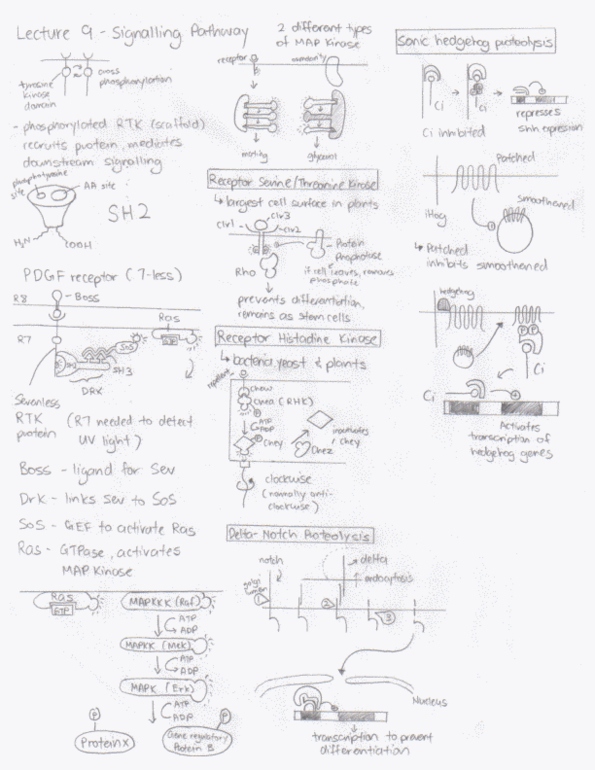 Lecture 9 - Signalling Pathway
tyrosine
kinase
domain
cross
phosphorylation
- phosphorylated RTK (scaffold)
recruits protein, mediates
downstream signalling
phosphotyrosine
site
AA site
SH2
H₂N
COOH
PDGF receptor ( 7-less)
R8
- Boss
Ras
R7
SOS
SH2
SH3
DRK
Sevenless
RTK
protein
(R7 needed to detect
UV light)
Boss - ligand for Sev
Drk - links sev to SoS
SoS - GEF to activate Ras
Ras - GTPase, activates
MAP Kinase
Ras
GTP
MAPKKK (Raf)
ATP
ADP
MAPKK (Mek)
ATP
ADP
MAPK (Erk)
ATP
ADP
P
P
Protein x
Gene regulatory
Protein B
2 different types
of MAP Kinase
receptor
mating
glycerol
Receptor Serine/Threonine Kinase
↳ largest cell surface in plants
Clv1
Clv3
Clv2
Rho
Protein
Phosphatase
if cell leaves, removes
phosphate
prevents differentiation,
remains as stem cells
Receptor Histadine Kinase
↳ bacteria, yeast & plants
repellent
chew
Chea (RHK)
ATP
ADP
P
Chey
Chez
inactivates
chey
clockwise
(normally anti-
clockwise)
Delta-Notch Proteolysis
notch
delta
endocytosis
golgi
1
2
3
Nucleus
transcription to prevent
differentiation
Sonic hedgehog proteolysis
Ci
Ci
Ci inhibited
represses
Patched
iHog
smoothened
↳ Patched
inhibits smoothened
hedgehog
P
P
Ci
Ci
Activates
transcription of
hedgehog genes